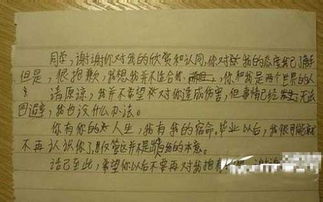 同学，谢谢你对我的欣赏和认同，你对我的态度我已了解
但是，很抱歉，我想我并不适合你，你和我是两个世界的人
请原谅，我并不希望对你造成伤害，但事情已经发生，无法
回避，我也没什么办法。
你有你的人生，我有我的宿命，毕业以后，我很可能就
不再认识你了，尽管这并不是我的本意。
话已至此，希望你以后不要再对我抱有